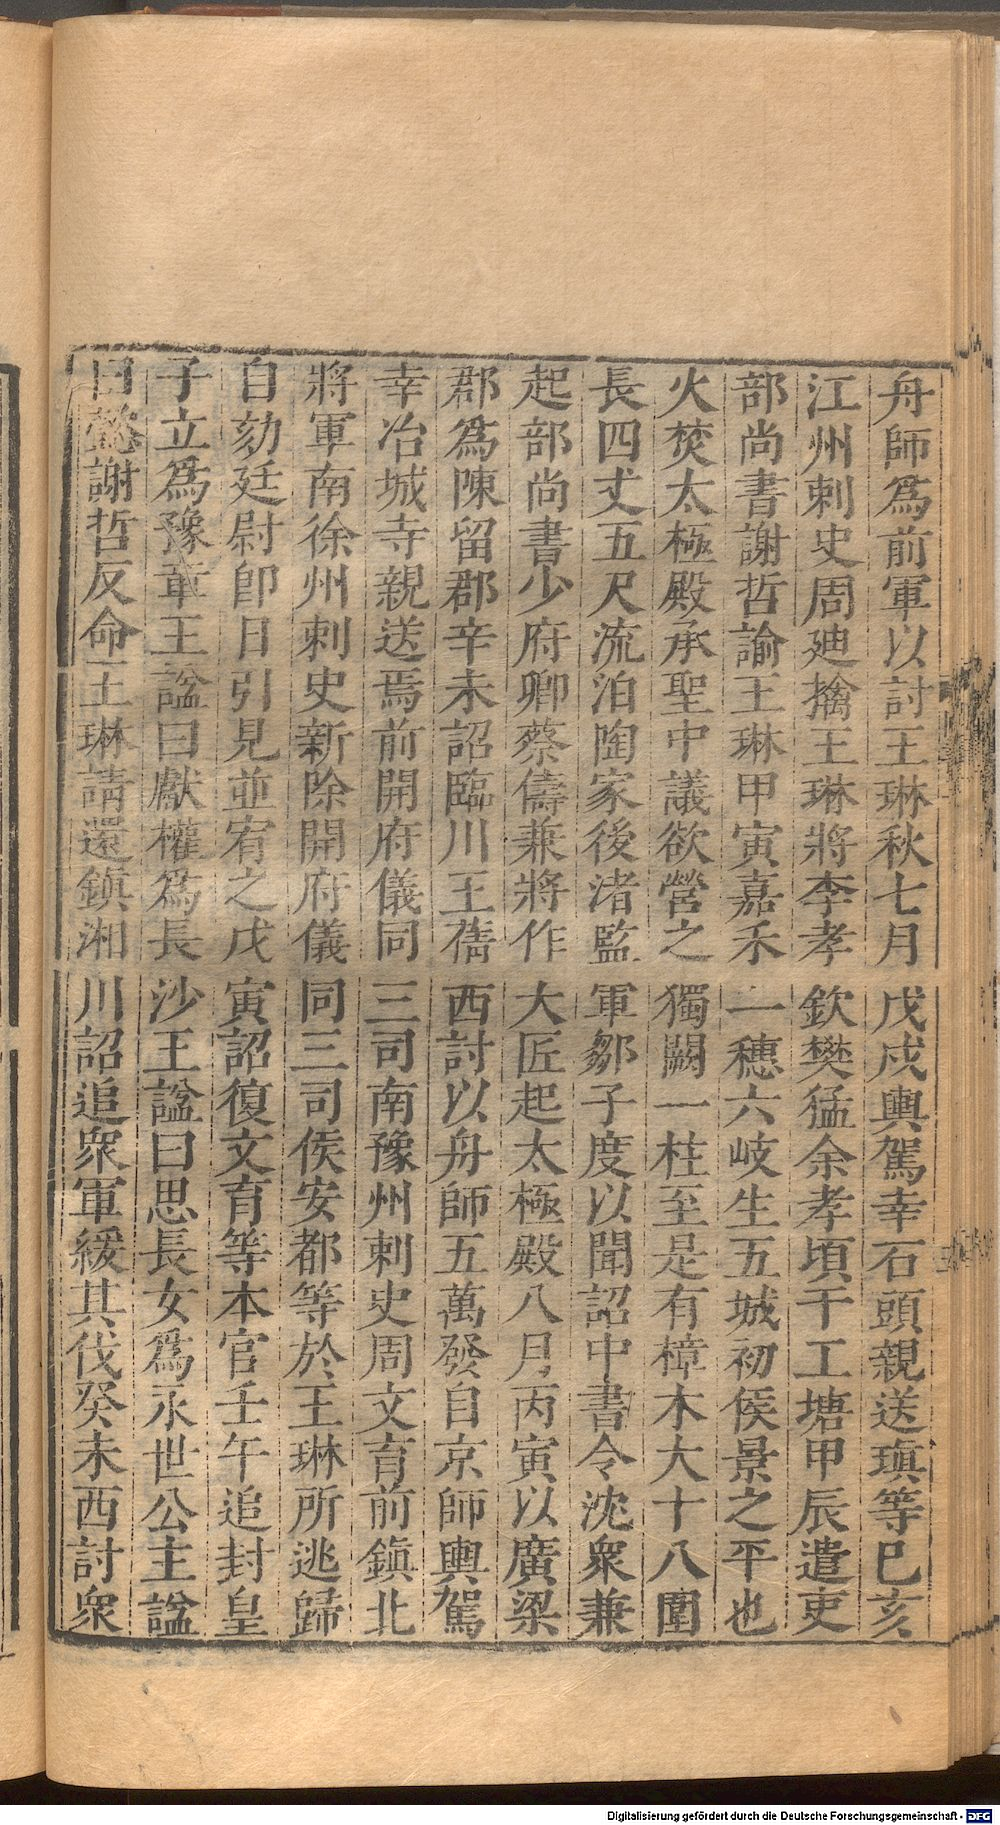 舟師爲前軍以討王琳秋七月戊戌輿駕幸石頭親送瑱等巳亥
江州刺史周廸擒王琳將李孝欽樊猛余孝頃于工塘甲辰遣吏
部尚書謝哲諭王琳甲寅嘉禾一穗六岐生五城初侯景之平也
火焚太極殿承聖中議欲營之獨闕一柱至是有樟木大十八圍
長四丈五尺流泊陶家後渚監軍鄒子度以聞詔中書令沈衆兼
起部尚書少府卿蔡儔兼將作大匠起太極殿八月丙寅以廣梁
郡爲陳留郡辛未詔臨川王蒨西討以舟師五萬發自京師輿駕
幸冶城寺親送焉前開府儀同三司南豫州刺史周文育前鎭北
將軍南徐州刺史新除開府儀同三司侯安都等於王琳所逃歸
自劾廷尉卽日引見並宥之戊寅詔復文育等本官壬午追封皇
子立爲豫章王諡曰獻權爲長沙王諡曰思長女爲永世公主諡
曰懿謝哲反命王琳請還鎭湘川詔追衆軍緩其伐癸未西討衆
Digitalisierung gefördert durch die Deutsche Forschungsgemeinschaft - DFG